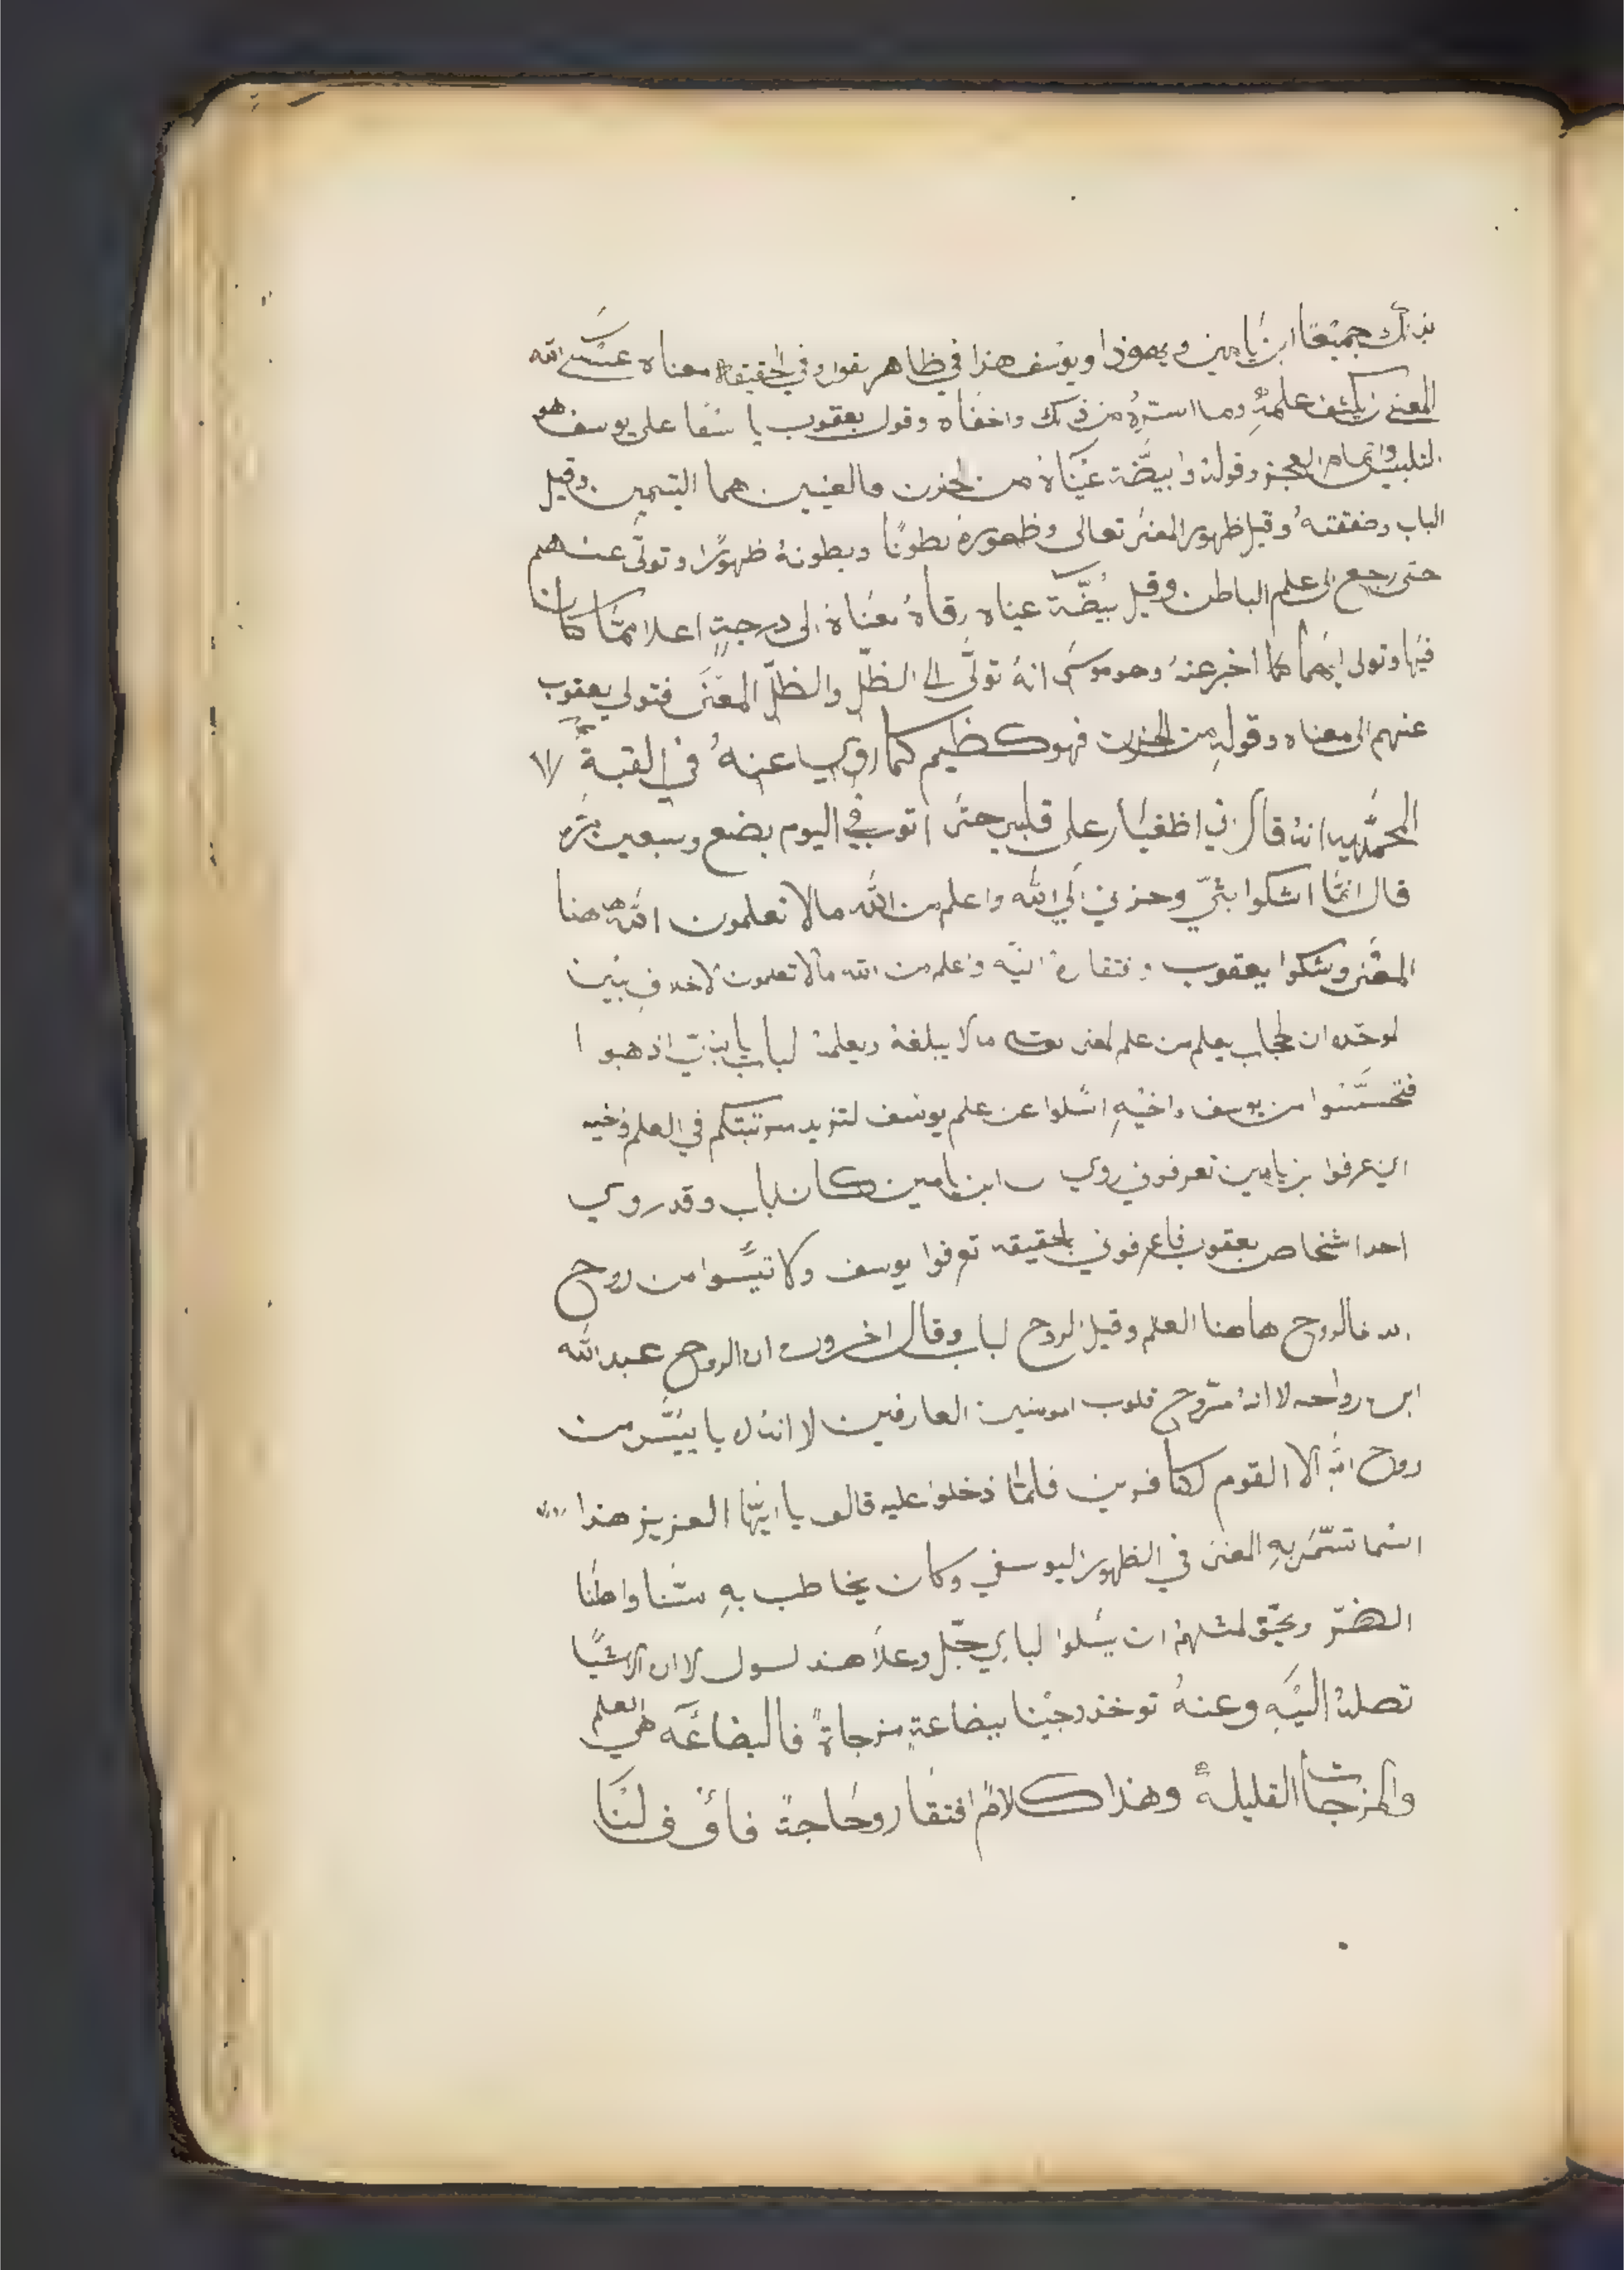 بذلك جميعًا ابن يامين ويهوذا ويوسف هذا في ظاهر يقول وفي الحقيقة معناه عسى الله
المعنى يكشف علمه وما استره من ذلك واخفاه وقول يعقوب يا سفا على يوسف هو
التلبيس واتمام العجز وقوله وابيضّة عيناه من الحزن فالعينين هما اليتيمين وقيل
الباب وضفقته وقيل ظهور المعنى تعالى وظهوره بطونًا وبطونه ظهورًا وتولى عنهم
حتى رجع الى علم الباطن وقيل بيضّة عيناه رقاه معناه الى درجةٍ اعلا ممّا كان
فيها وتولى ايضا كما اخبر عنه وهو موسى انه تولّى الى الظلّ والظلّ المعنى فتولى يعقوب
عنهم الى معناه وقولهِ من الحزن فهو كظيم كما روي عنه في القبة الا
المحمّديه انه قال اني اظفيار على قلبي حتى اتوب في اليوم بضع وسبعين مرّه
قال انمّا اشكوا بثّي وحزني الى الله واعلم من الله مالا تعلمون الله هاهنا
المعنى وشكوا يعقوب وفتقاره اليه واعلم من الله مالا تعلمون لاخلاف بين
لموحّده ان الحجاب يعلم من علم لمعنى مالا يبلغه ويعلمه لباب يا بنيّ اذهبوا
فتحسّسوا من يوسف واخيهِ اسلوا عن علم يوسف لتزيد مرتبتكم في العلم وخيه
اي عرفوا بن يامين تعرفوني روي ان ابن يامين كان لباب وقد روي
احد اشخاص يعقوب فاعرفوني بالحقيقه تعرفوا يوسف ولا تيّسوا من روح
الله فالروح هاهنا العلم وقيل الروح لباب وقال اخرون ان الروح عبد الله
ابن رواحه لا انه مرّوح قلوب المومنين العارفين لا انه لا يا ييّس من
روح الله الا القوم الكافرين فلمّا دخلوا عليه قالوا يا ايّها العزيز هذا
اسما تسمّى بهِ المعنى في الظهور اليوسفي وكان يخاطب بهِ مسّنا واهلنا
الضرّ ويحقّ لمثلهم ان يسلوا لباري جّل وعلا هذا لسول لان الاشيًا
تصله اليهِ وعنه توخذ وجينا ببضاعةٍ مزجاةً فالبضاعَه هي العلم
والمزجات القليلة وهذا كلامُ افتقار وحاجة فاوف لنا